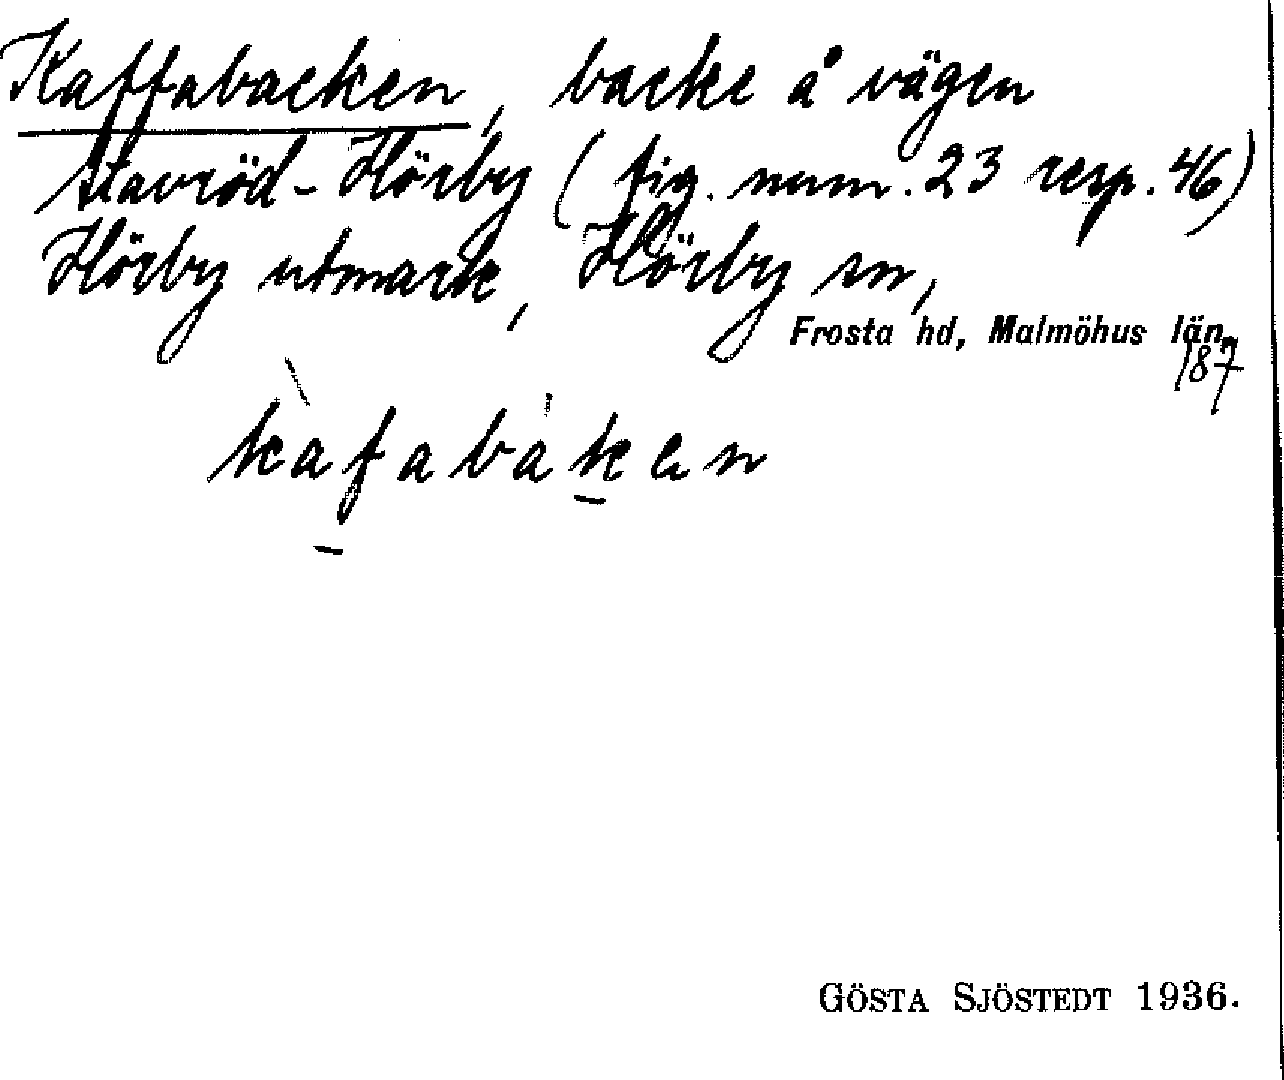 Kaffabacken, backe å vägen
Stavröd-Hörby (fig. num. 23 resp. 46)
Hörby utmark, Hörby sn,
Frosta hd, Malmöhus län.
187
kàfabáken
GÖSTA SJÖSTEDT 1936.